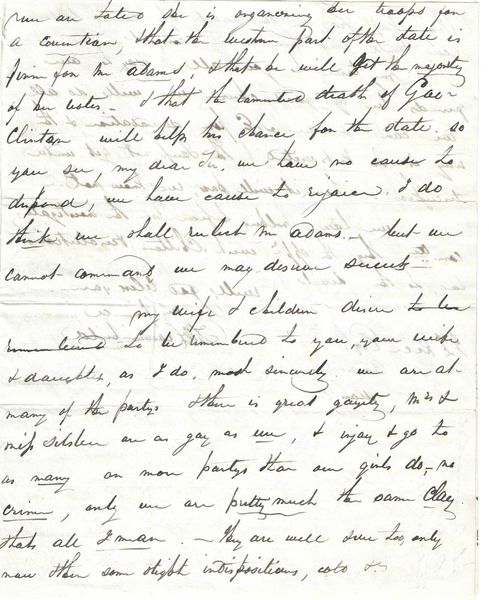 is organizing her troops for
a countian, & that the western part of the state is
firm for Mr Adams & that he will get the majority
of her votes - & that the lamented death of Gov.r
Clinton will help his chance for the state. so
you see, my dear Sr. we have no cause to
dispond, we have cause to rejoice. I do
think we shall reelect Mr Adams. - but we
cannot command we may deserve success -
my wife & children desire to be
remembered to be remembered to you, your wife
& daughter, as I do, most sincerely. we are at
many of the partys there is great gayety, Mrs &
miss Silsbee are as gay as we, & injoy & go to
as many or more partys than our girls do - no
crime, only we are pretty much the same Clay.
thats all I mean. - They are well sure too, only
now & then some slight indispositions, cold &c